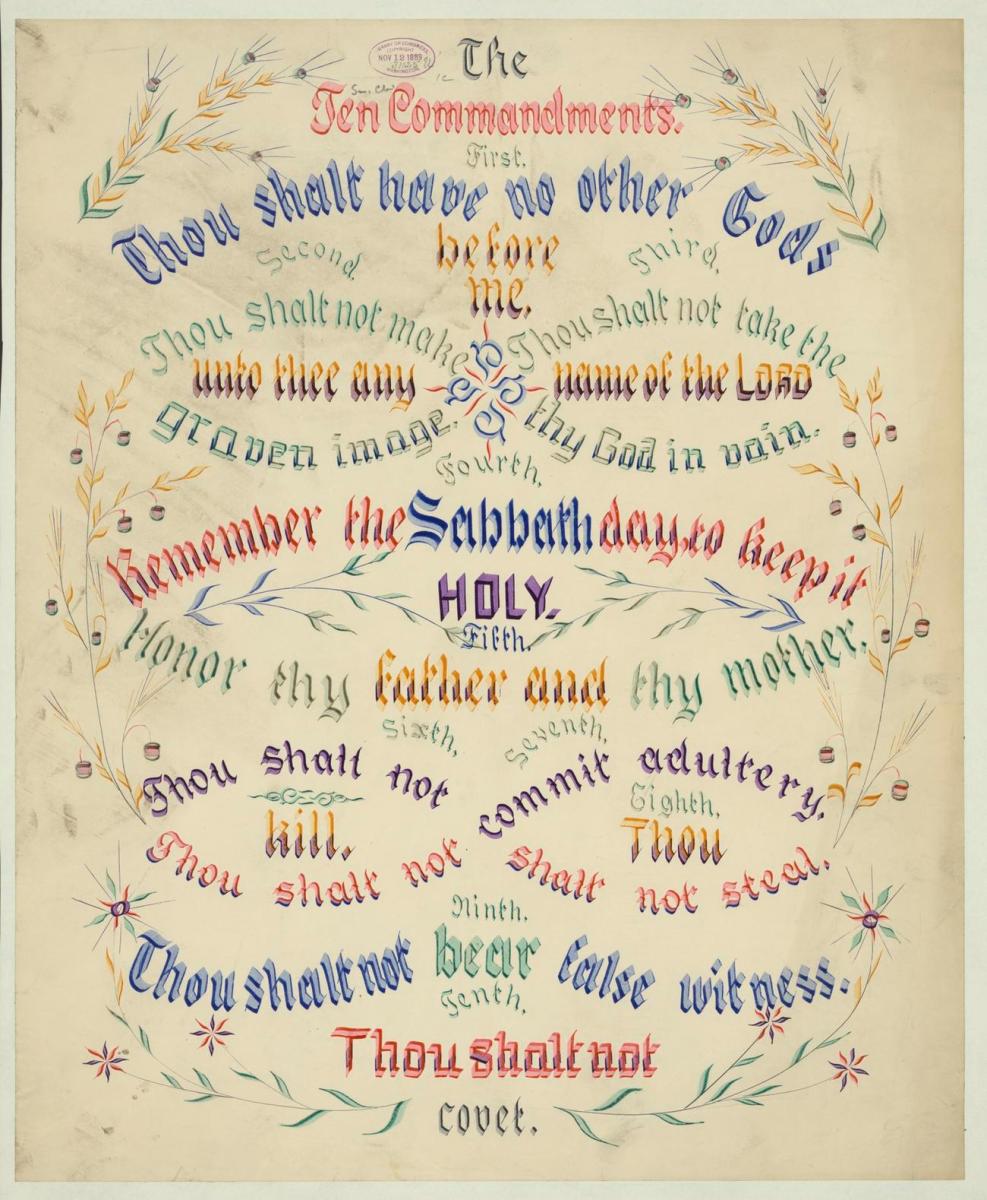 LIBRARY OF CONGRESS
COPYRIGHT
NOV 12
WASHINGTON
The
Ten Commandments.
First.
Thou shalt have no other Gods
before
me.
Second.
Thou shalt not make
unto thee any
graven image.
Third.
Thou shalt not take the
name of the LORD
thy God in vain.
Fourth.
Remember the Sabbath day, to keep it
HOLY.
Fifth.
Honor thy father and thy mother.
Sixth.
Thou shalt not
kill.
Seventh.
Thou shalt not
commit adultery.
Eighth.
Thou
shalt not steal.
Ninth.
Thou shalt not bear false witness.
Tenth.
Thou shalt not
covet.